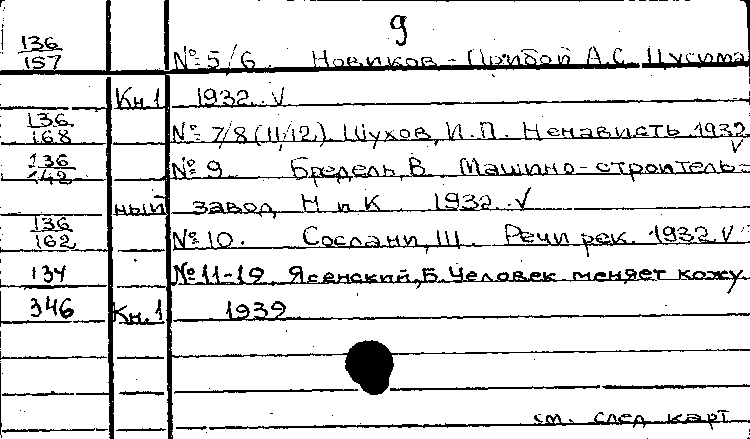 9
136/157 №5/6. Новиков-Прибой А.С. Цусима
Кн.1 1932. V
136/168 №7/8(11/12) Шухов, И.П. Ненависть 1932 V
136/142 №9 Бредель, В. Машино-строитель-
ный завод Н и К 1932. V
136/162 №10. Сослани, Ш. Речи рек. 1932 V
134 №11-12 Ясенский, Б. Человек меняет кожу.
346 Кн.1 1932
см. след карт